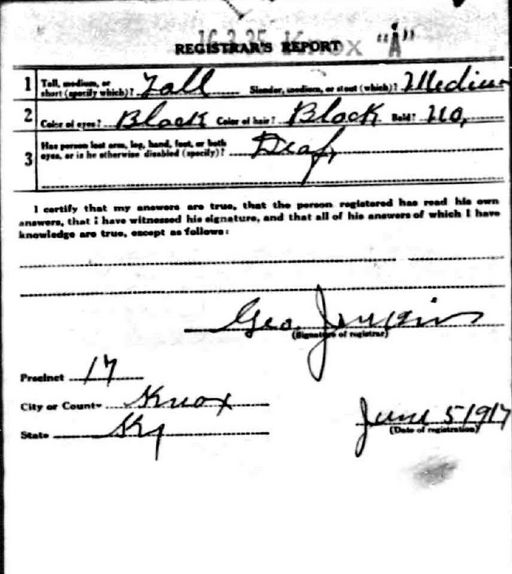 16 3 25 Knox "A"
REGISTRAR'S REPORT
1 Tall, medium, or short (specify which)? Tall Slender, medium, or stout (which)? Medium
2 Color of eyes? Black Color of hair? Black Bald? No,
3 Has person lost arm, leg, hand, foot, or both eyes, or is he otherwise disabled (specify)? Deaf,
I certify that my answers are true, that the person registered has read his own
answers, that I have witnessed his signature, and that all of his answers of which I have
knowledge are true, except as follows:
Geo Jenkins
(Signature of registrar)
Precinct 17
City or County Knox
State Ky
June 5 1917
(Date of registration)